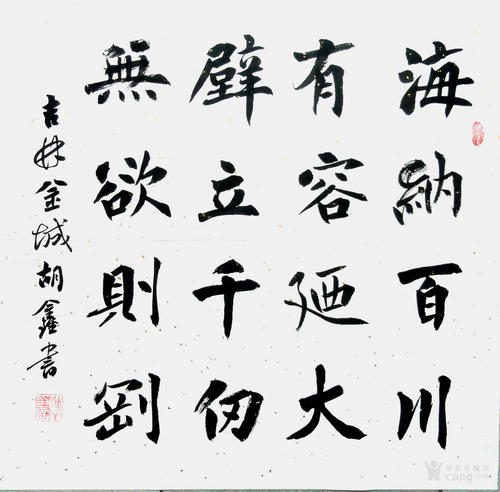 海納百川
有容廼大
壁立千仞
無欲則剛
吉林金城胡鑫書